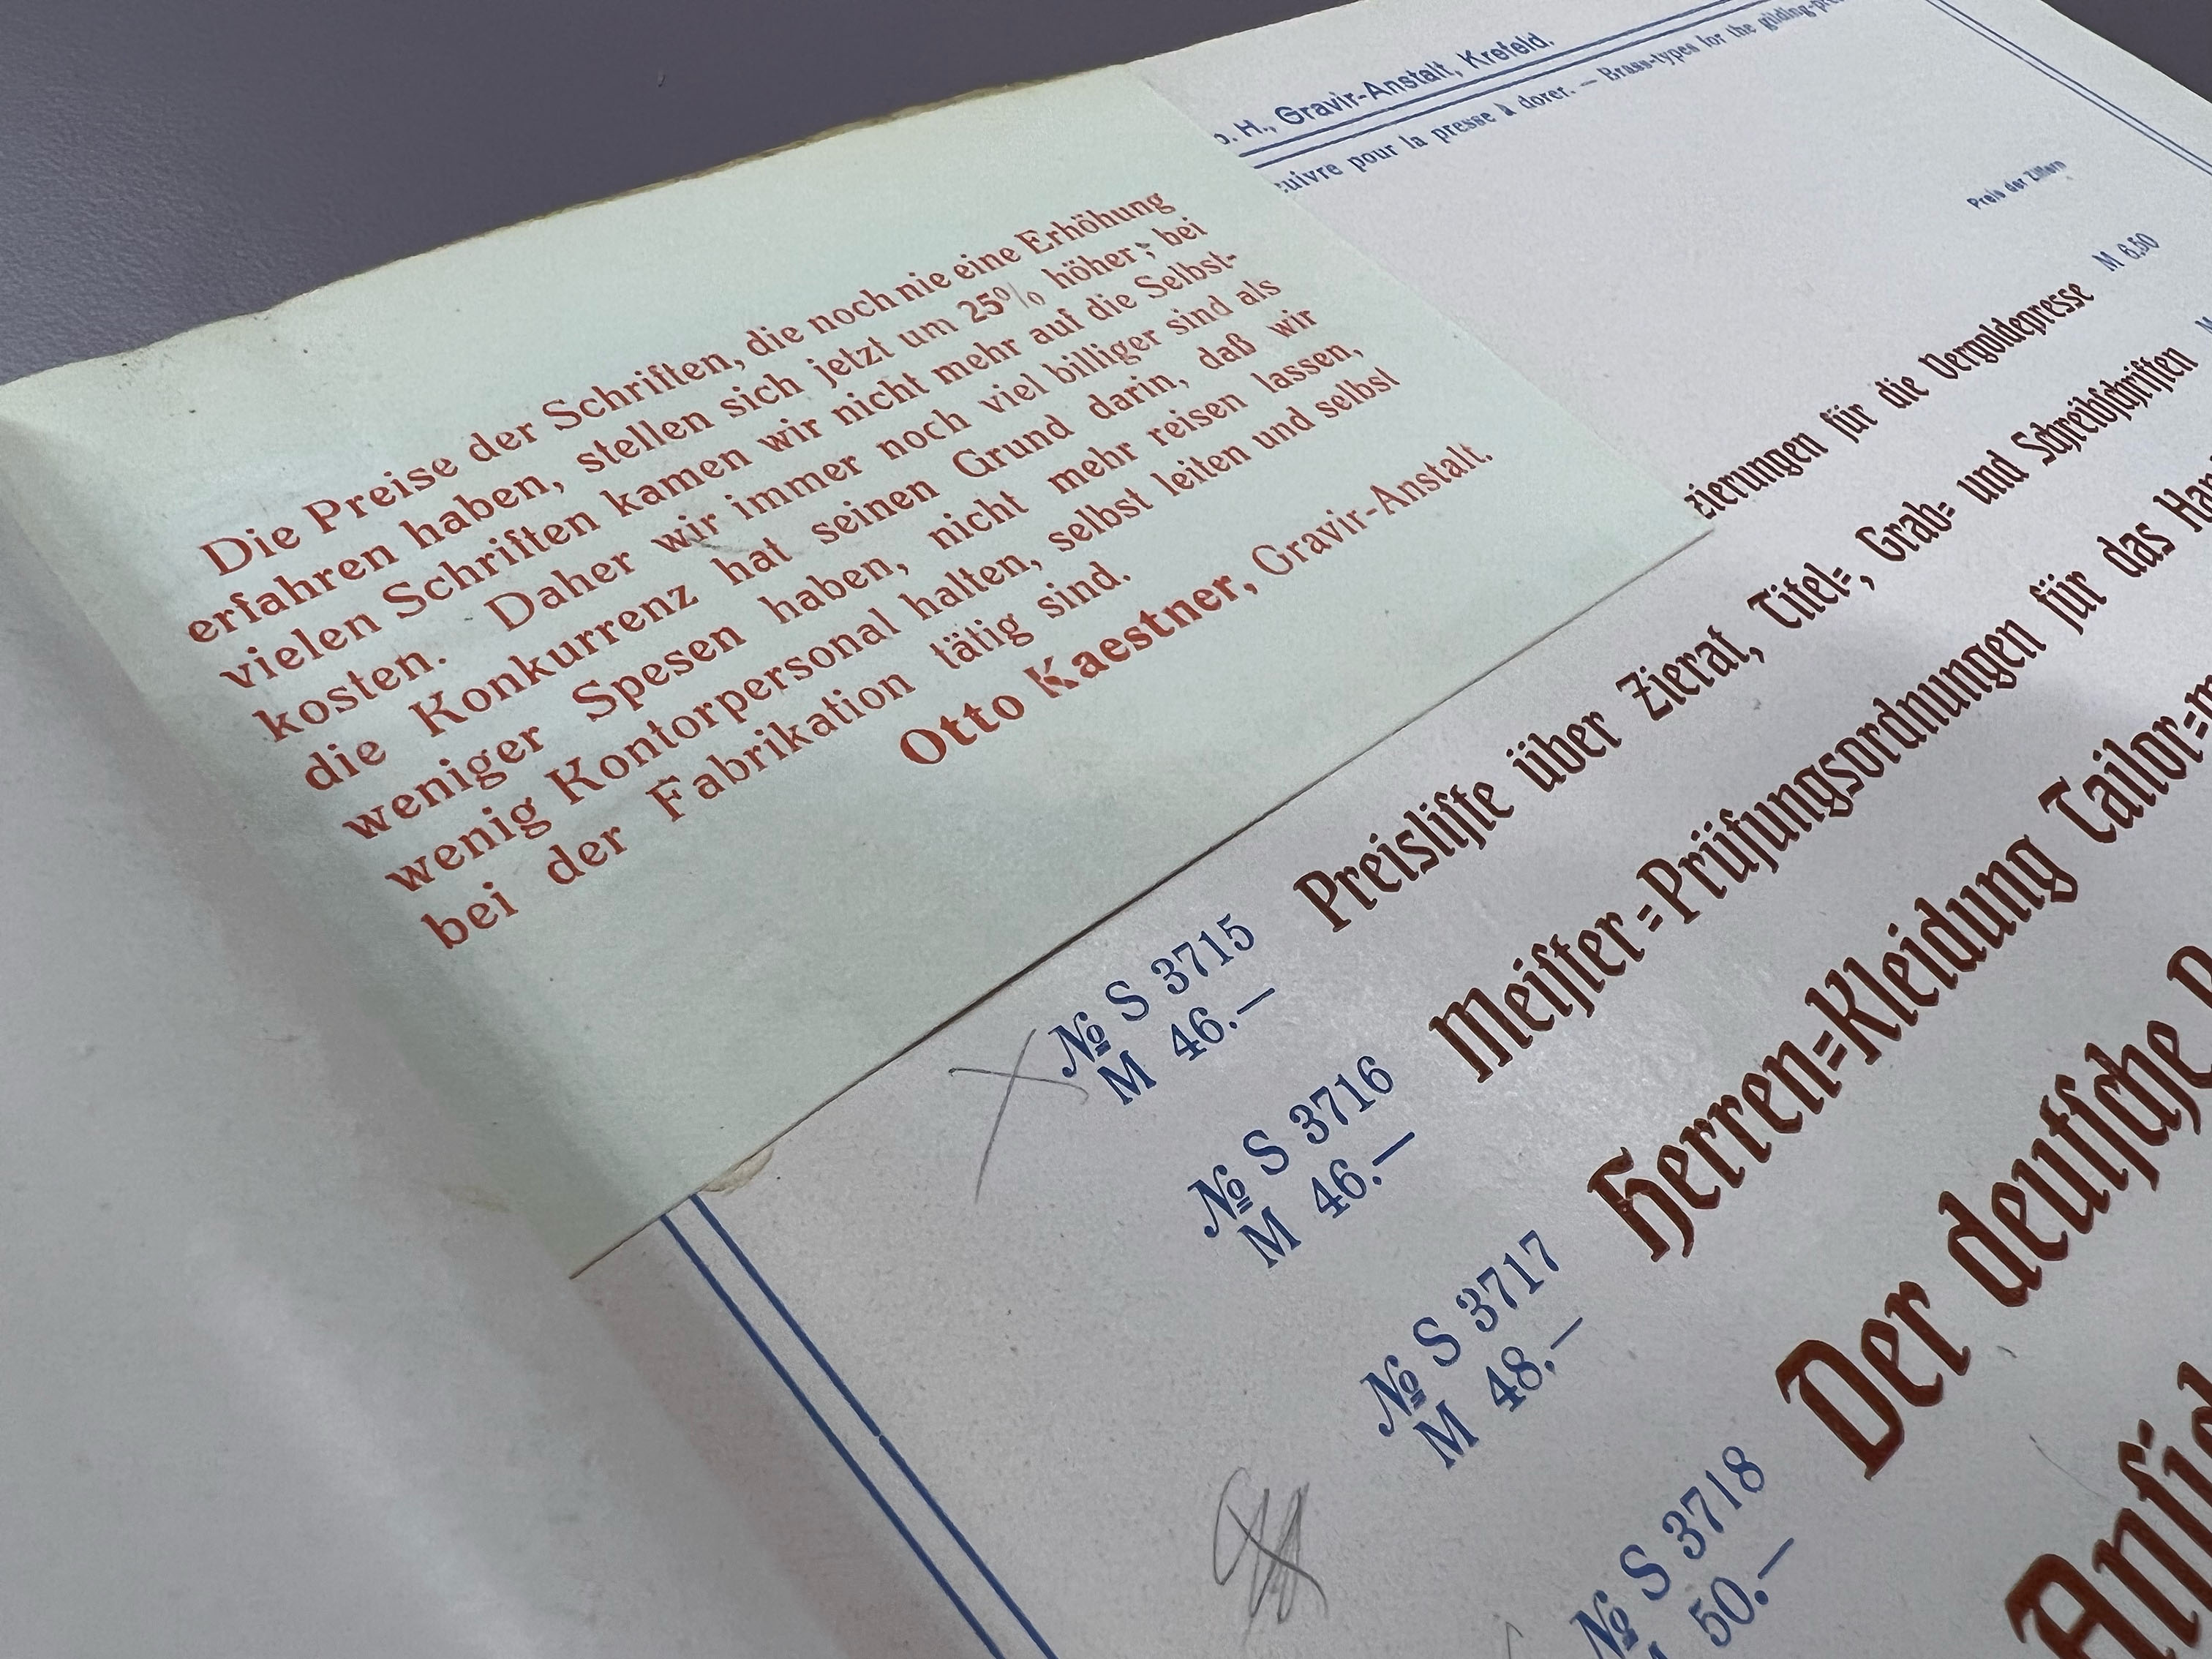 Die Preise der Schriften, die noch nie eine Erhöhung
erfahren haben, stellen sich jetzt um 25% höher; bei
vielen Schriften kamen wir nicht mehr auf die Selbst-
kosten. Daher wir immer noch viel billiger sind als
die Konkurrenz hat seinen Grund darin, daß wir
weniger Spesen haben, nicht mehr reisen lassen,
wenig Kontorpersonal halten, selbst leiten und selbst
bei der Fabrikation tätig sind.
Otto Kaestner, Gravir-Anstalt.
b. H., Gravir-Anstalt, Krefeld.
cuivre pour la presse à dorer. — Brass-types for the gilding-pre
Preis der Ziffern
M 6,50
zierungen für die Vergoldepresse
№ S 3715
M 46.—
Preisliſte über Zierat, Titel=, Grab= und Schreibſchriften
№ S 3716
M 46.—
Meiſter=Prüfungsordnungen für das Han
№ S 3717
M 48.—
Herren=Kleidung Tailor=m
№ S 3718
M 50.—
Der deutſche